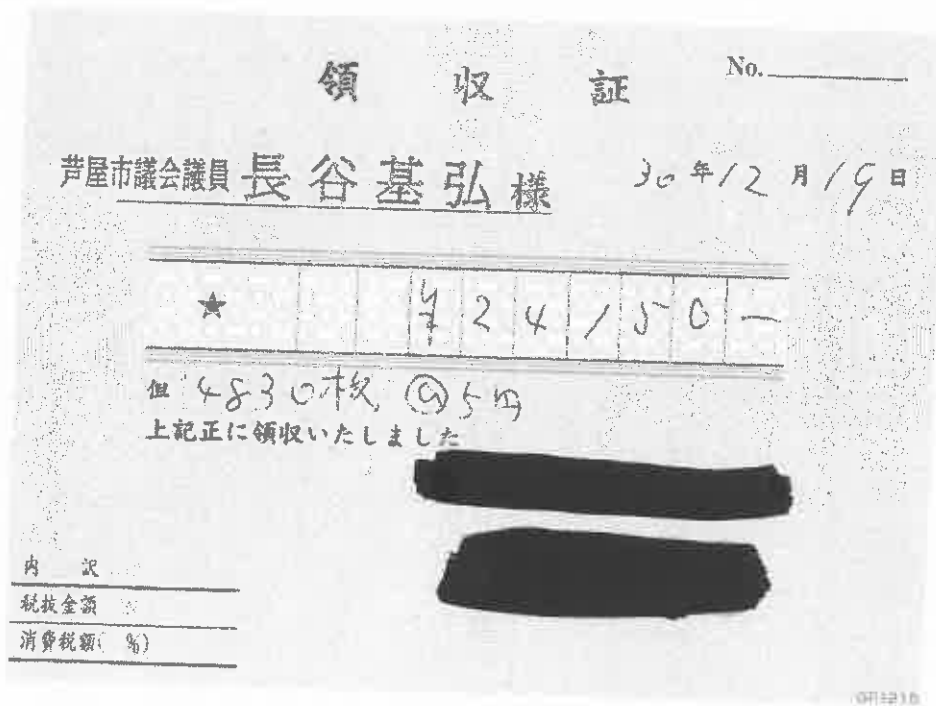 領収証
No.
芦屋市議会議員 長谷基弘様
30年12月19日
★ ¥24150-
但 4830枚 @5円
上記正に領収いたしました
内訳
税抜金額
消費税額( %)